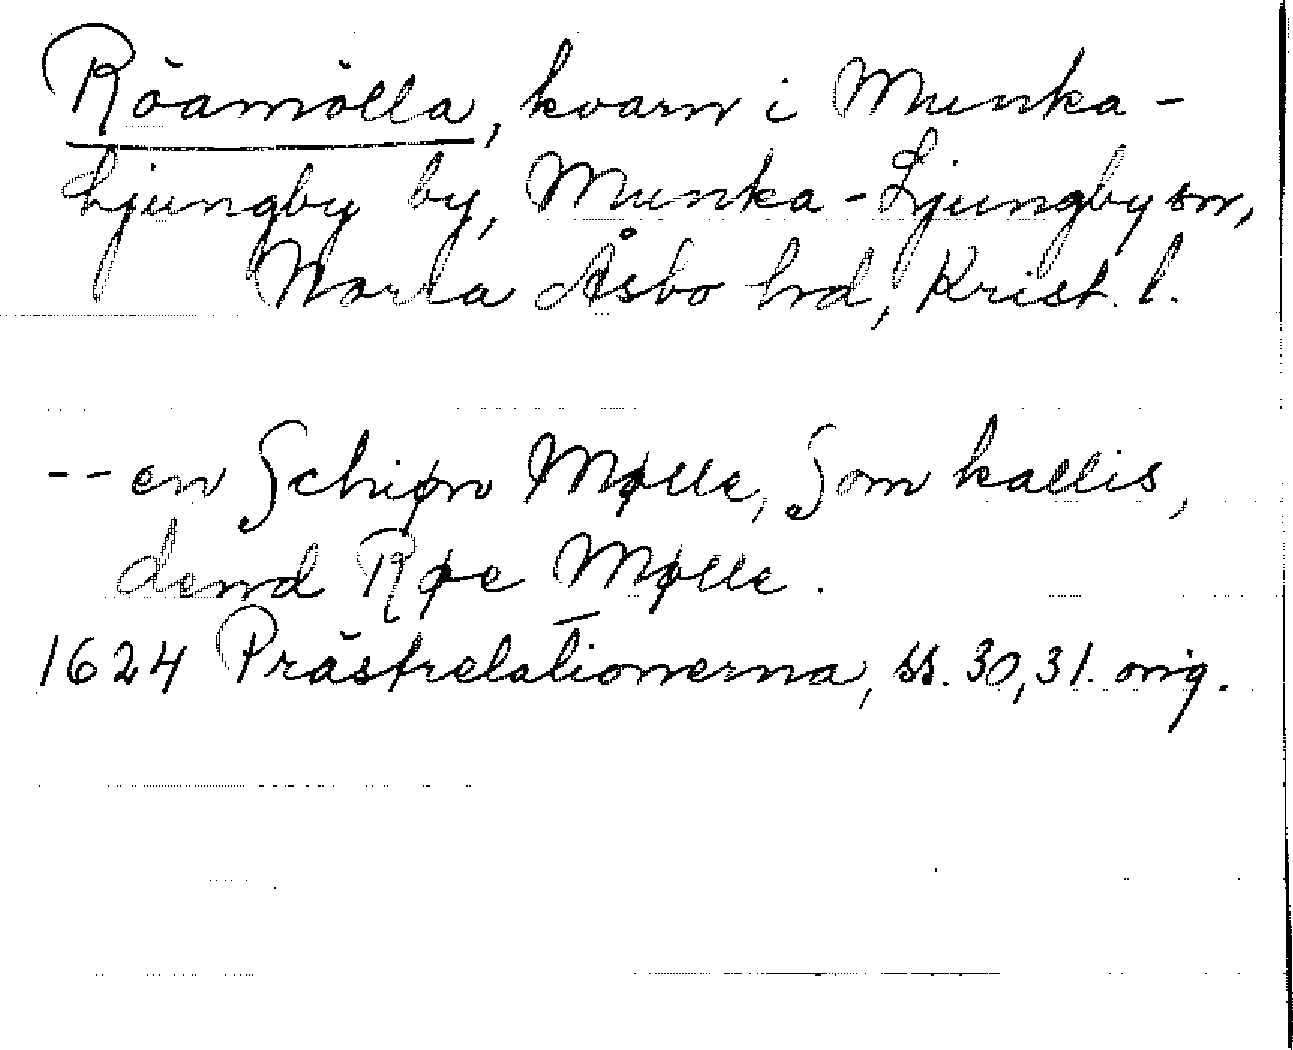 Röamölla, kvarn i Munka-
Ljungby by, Munka-Ljungby sn,
Norra Åsbo hd, Krist. l.
-- en Schiøn Mølle, Som kallis,
dend Røe Mølle.
1624 Prästrelationerna, ss. 30, 31. orig.